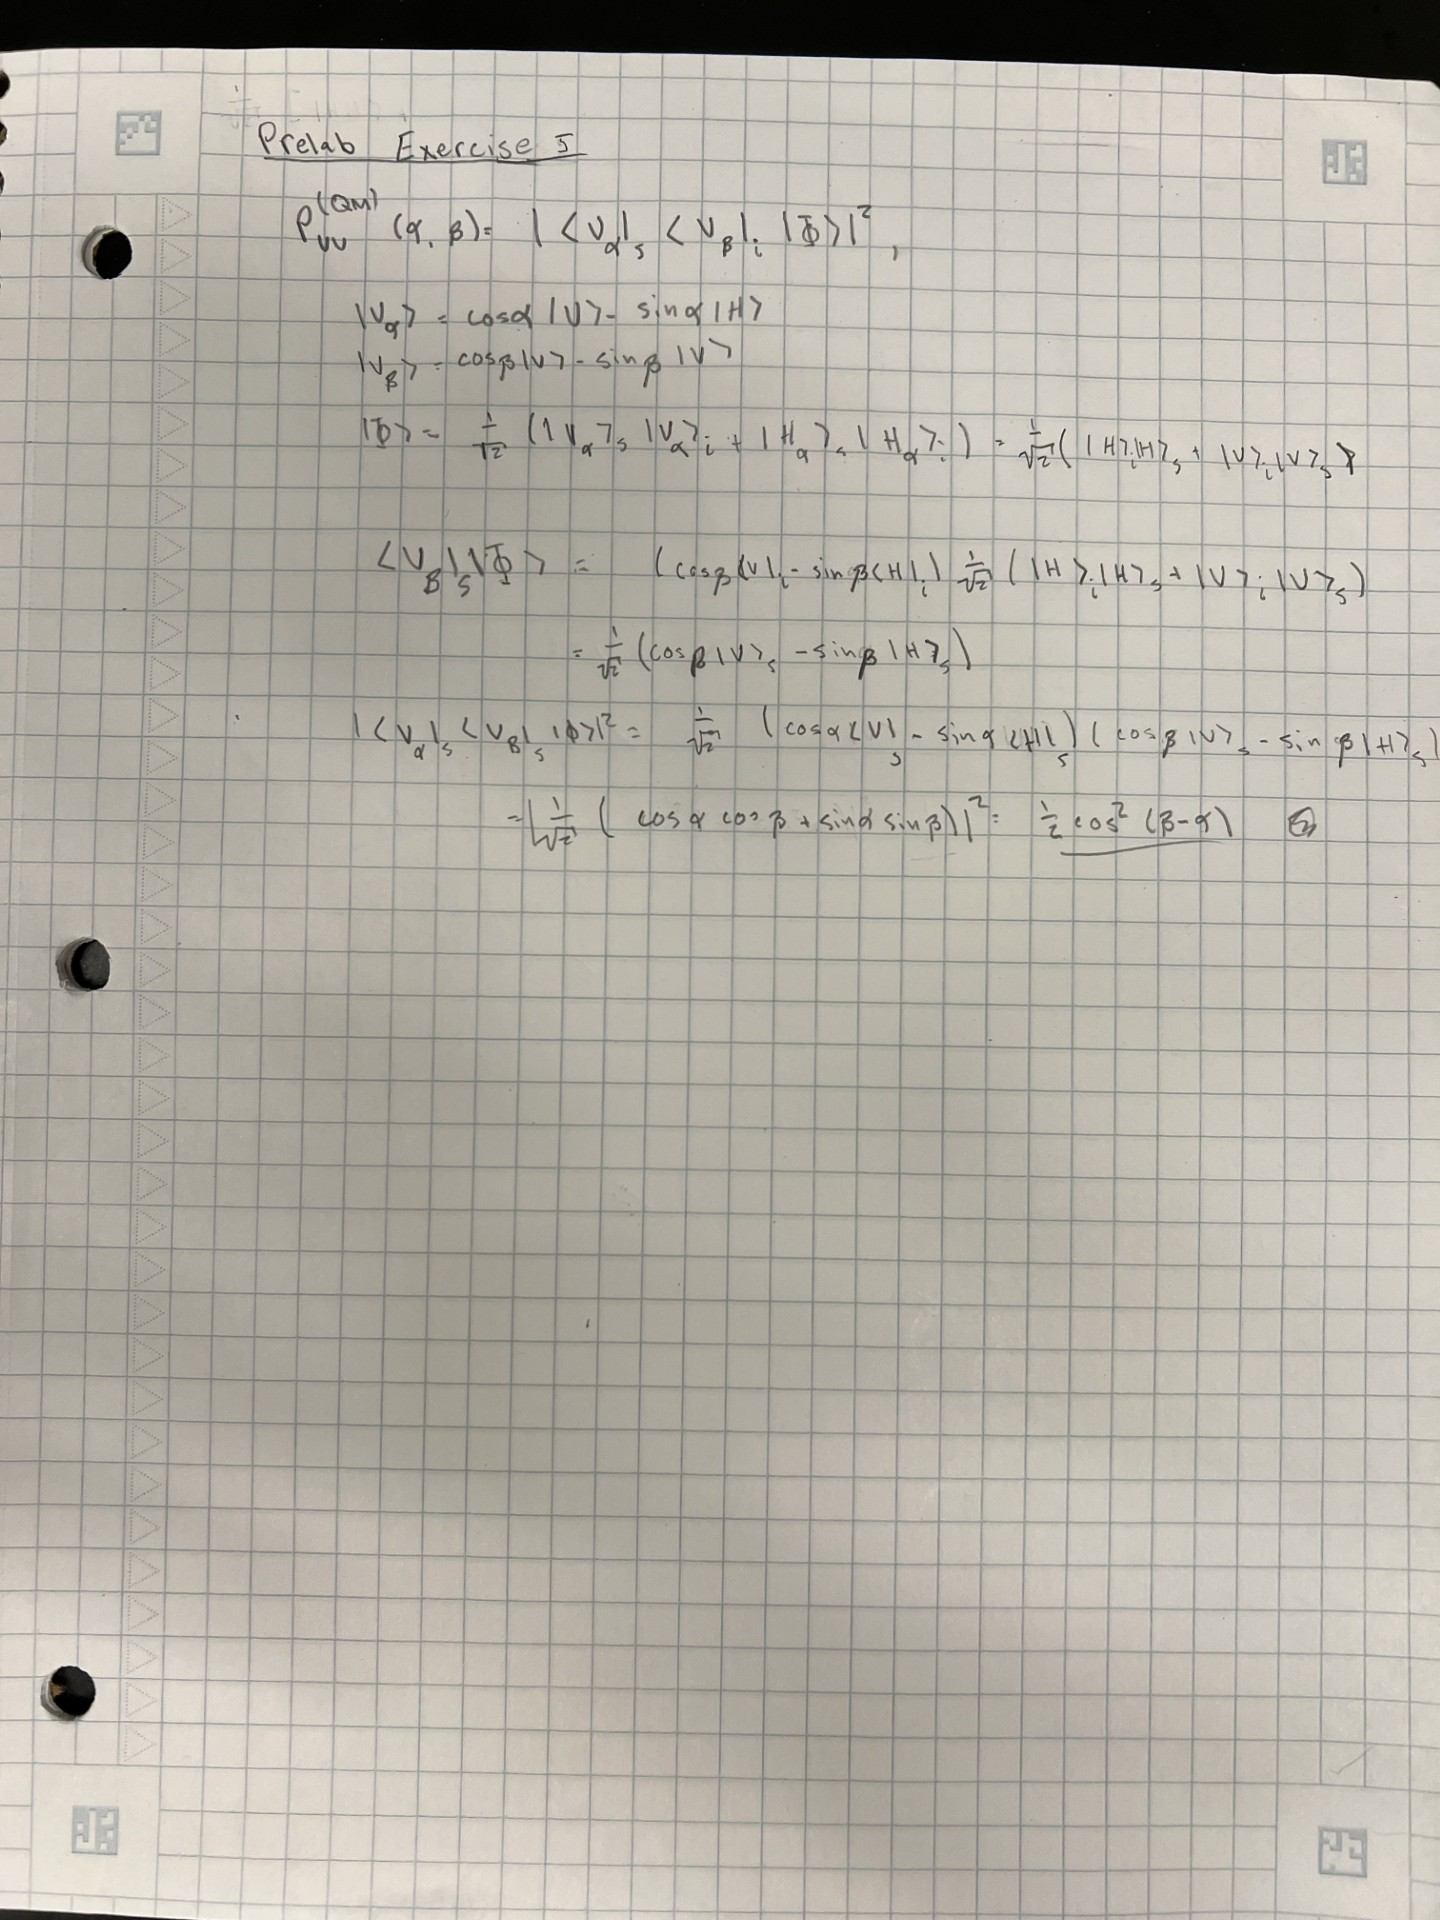 Prelab Exercise 5
P_VV^(QM) (α, β) = |<V_α|_s <V_β|_i |Φ>|²,
|V_α> = cosα |V> - sinα |H>
|V_β> = cosβ |V> - sinβ |V>
|Φ> = 1/√2 (|V_α>_s |V_α>_i + |H_α>_s |H_α>_i) = 1/√2 (|H>_i |H>_s + |V>_i |V>_s)
<V_β|_s |Φ> = (cosβ <V|_i - sinβ <H|_i) 1/√2 (|H>_i |H>_s + |V>_i |V>_s)
= 1/√2 (cosβ |V>_s - sinβ |H>_s)
|<V_α|_s <V_β|_s |Φ>|² = 1/√2 (cosα <V|_s - sinα <H|_s) (cosβ |V>_s - sinβ |H>_s)
= |1/√2 (cosα cosβ + sinα sinβ)|² = 1/2 cos² (β-α)